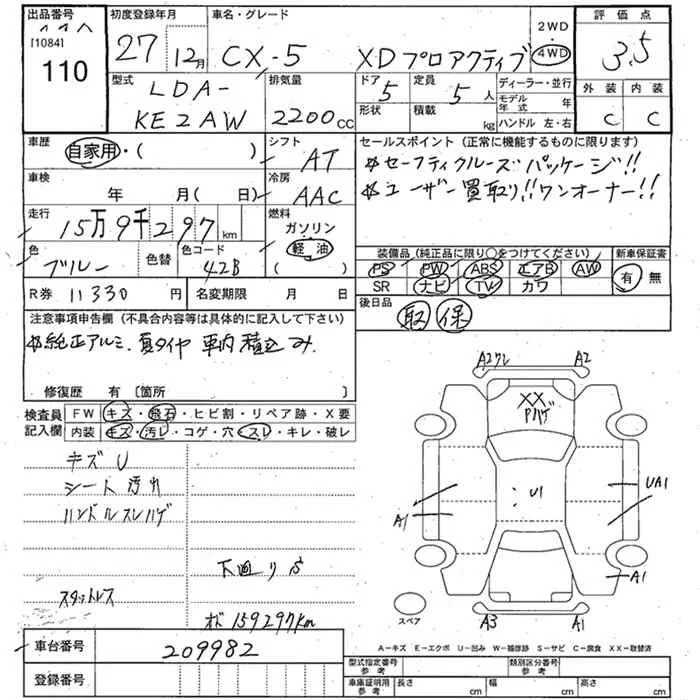 出品番号
[1084]
110
初度登録年月
27 12月
車名・グレード
CX-5 XDプロアクティブ
2WD
・
4WD
評価点
3.5
外装 内装
C C
型式
LDA-
KE2AW
排気量
2200cc
ドア
5
定員
5人
形状
積載
kg
ディーラー・並行
モデル年式 年
ハンドル 左・右
車歴
自家用・( )
シフト
AT
セールスポイント (正常に機能するものに限ります)
*セーフティクルーズパッケージ!!
*ユーザー買取り!!ワンオーナー!!
車検
年 月( 日)
冷房
AAC
走行
15万9千297km
燃料
ガソリン
軽油
( )
色
ブルー
色替
色コード
42B
装備品 (純正品に限り○をつけてください)
PS PW ABS エアB AW
SR ナビ TV カワ
新車保証書
有 無
R券 11330円
名変期限 月 日
後日品
取 保
注意事項申告欄 (不具合内容等は具体的に記入して下さい)
*純正アルミ、夏タイヤ 車内積込み.
修復歴 有 [箇所 ]
検査員記入欄
FW キズ・飛石・ヒビ割・リペア跡・X要
内装 キズ・汚レ・コゲ・穴・スレ・キレ・破レ
キズU
シート汚れ
ハンドルスレハゲ
下廻りS
スタットレス
オド159297km
A2ワレ A2
XX
Pハゲ
U1
A1
UA1
A1
A3 A1
スペア
A-キズ E-エクボ U-凹み W-補修跡 S-サビ C-腐食 XX-取替済
車台番号 209982
登録番号
型式指定番号
参考
類別区分番号
参考
車庫証明用
参考
長さ cm 幅 cm 高さ cm